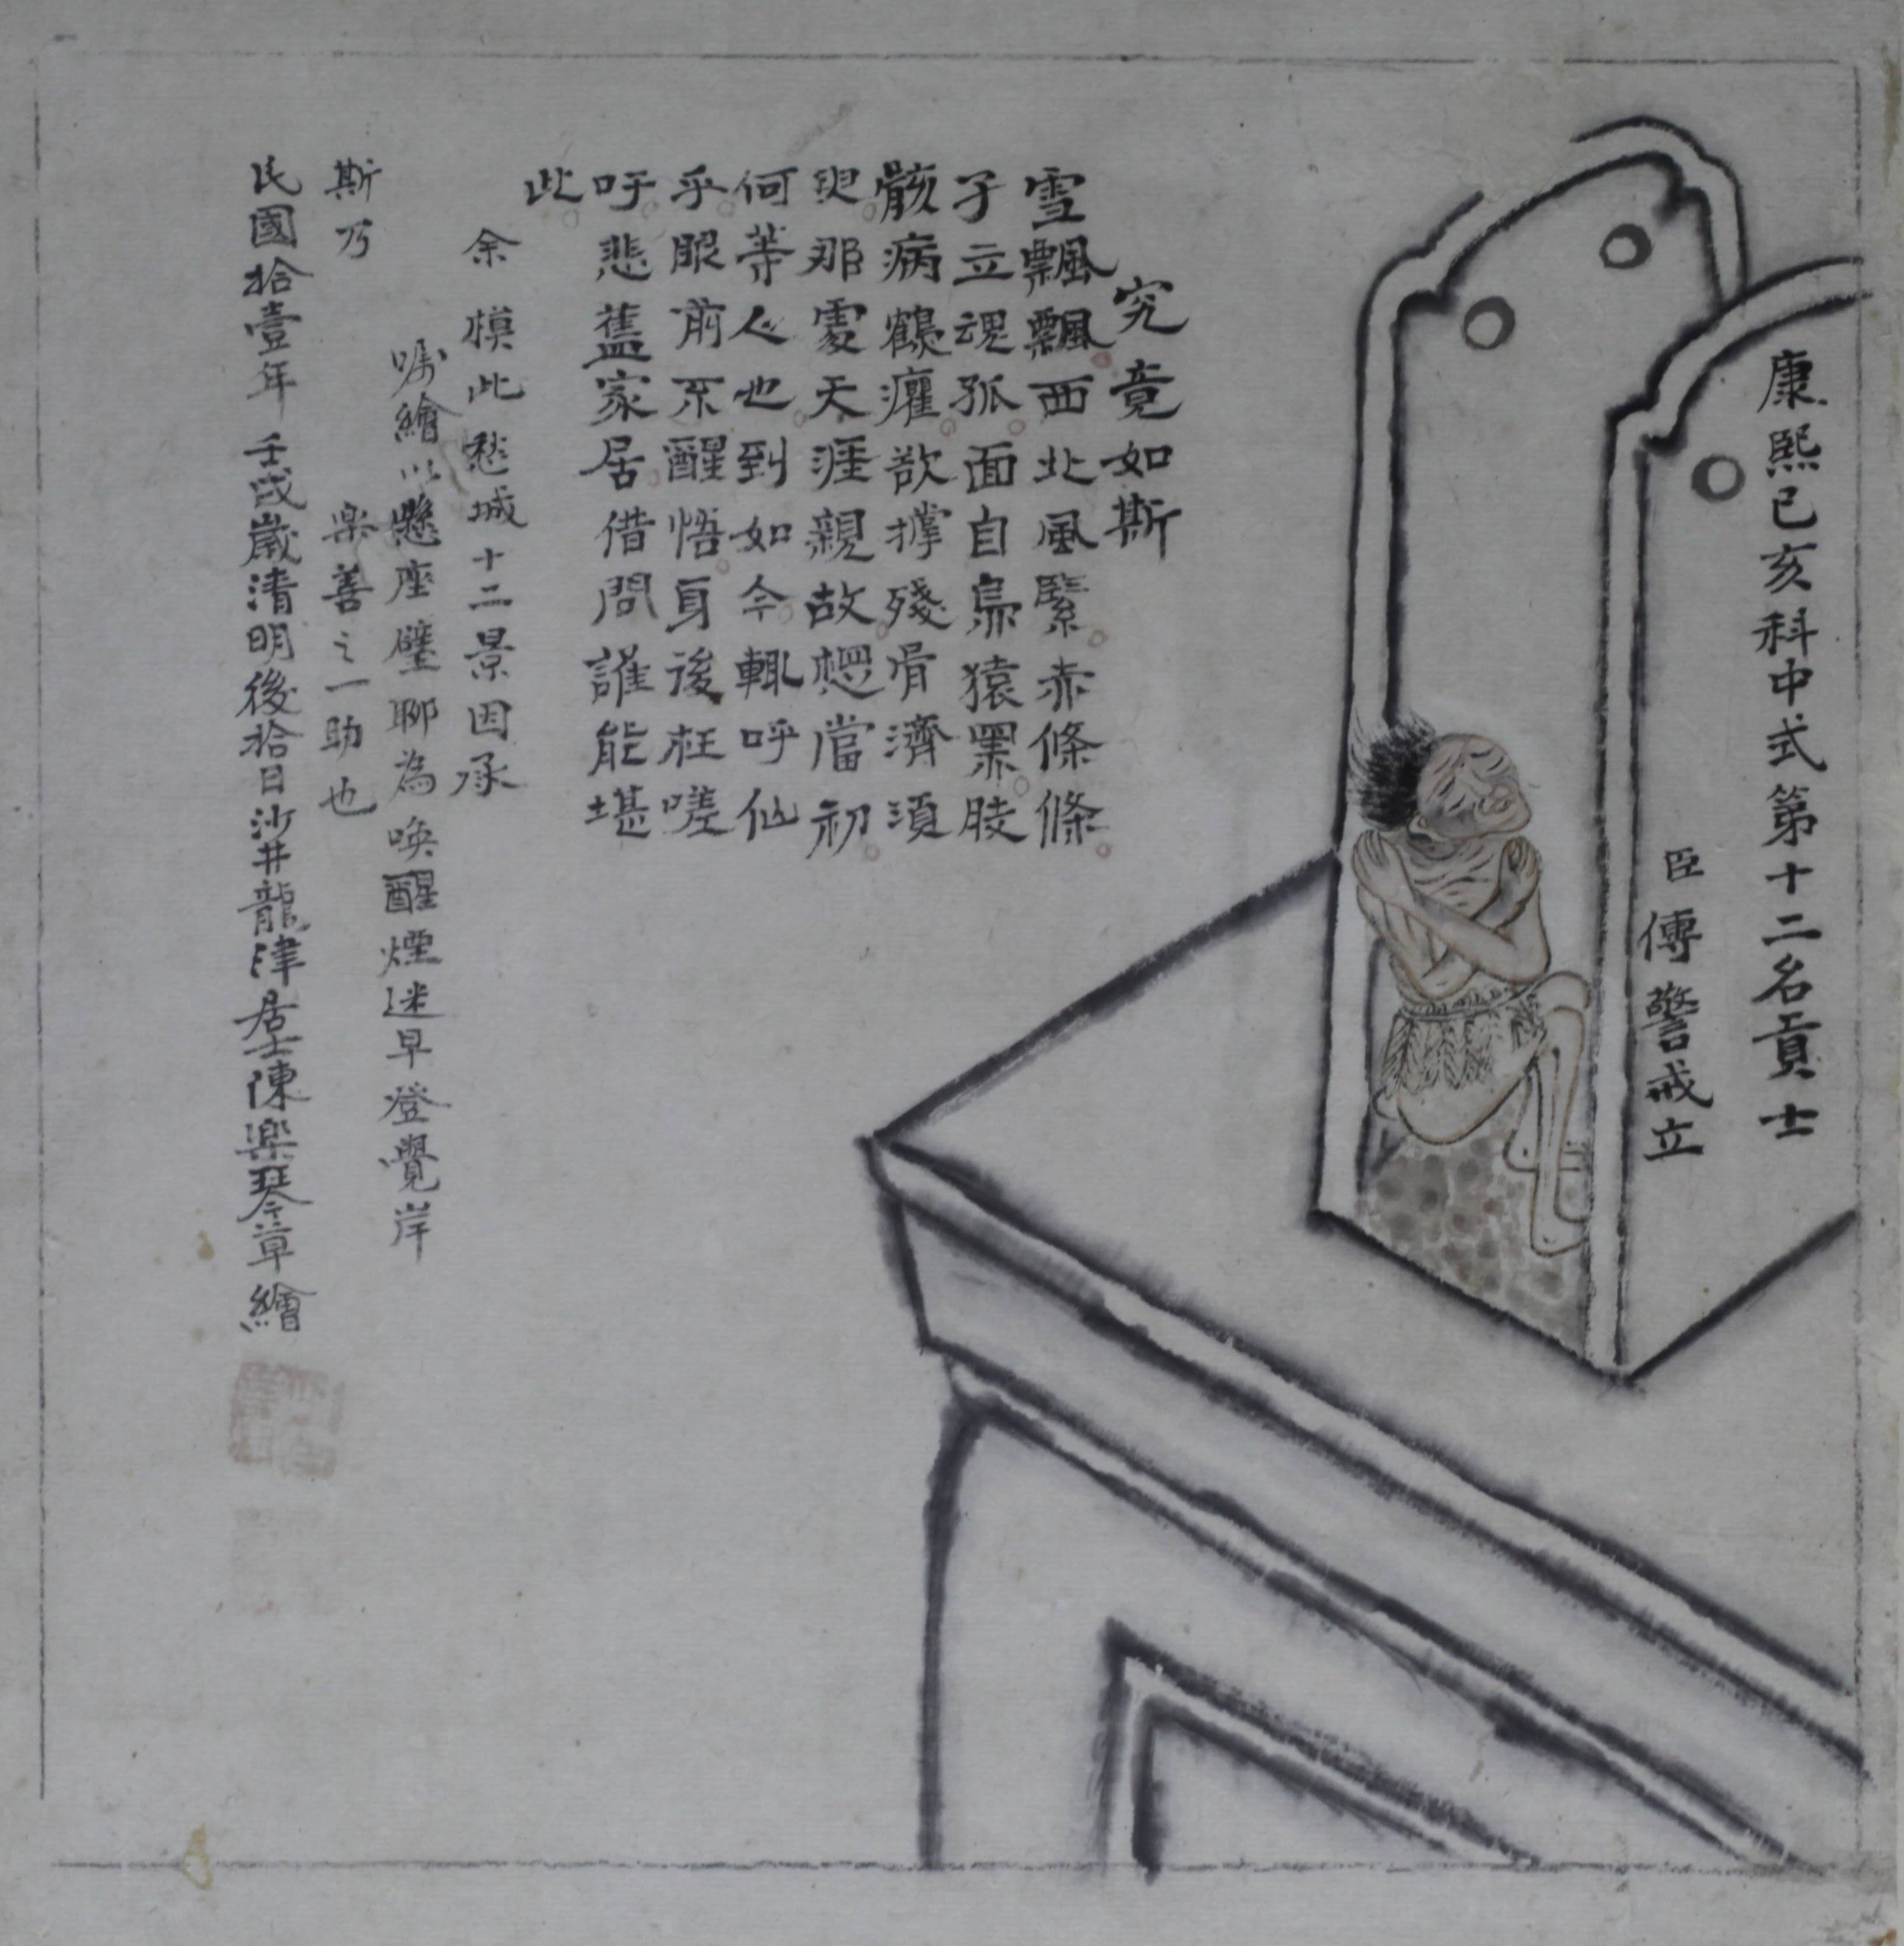 康熙已亥科中式第十二名貢士
臣傅警戒立
究竟如斯
雪飄飄西北風緊赤條條
孑立魂孤面自梟猿黑肢
骸病鶴癯欲撑殘骨濟須
臾那處天涯親故想當初
何等人也到如今輒呼仙
乎眼前不醒悟身後枉嗟
吁悲舊家居借問誰能堪
此
余模此愁城十二景因承
囑繪以懸座壁聊為喚醒煙迷早登覺岸
斯乃樂善之一助也
民國拾壹年壬戌歲清明後拾日沙井龍津居士陳樂琴草繪